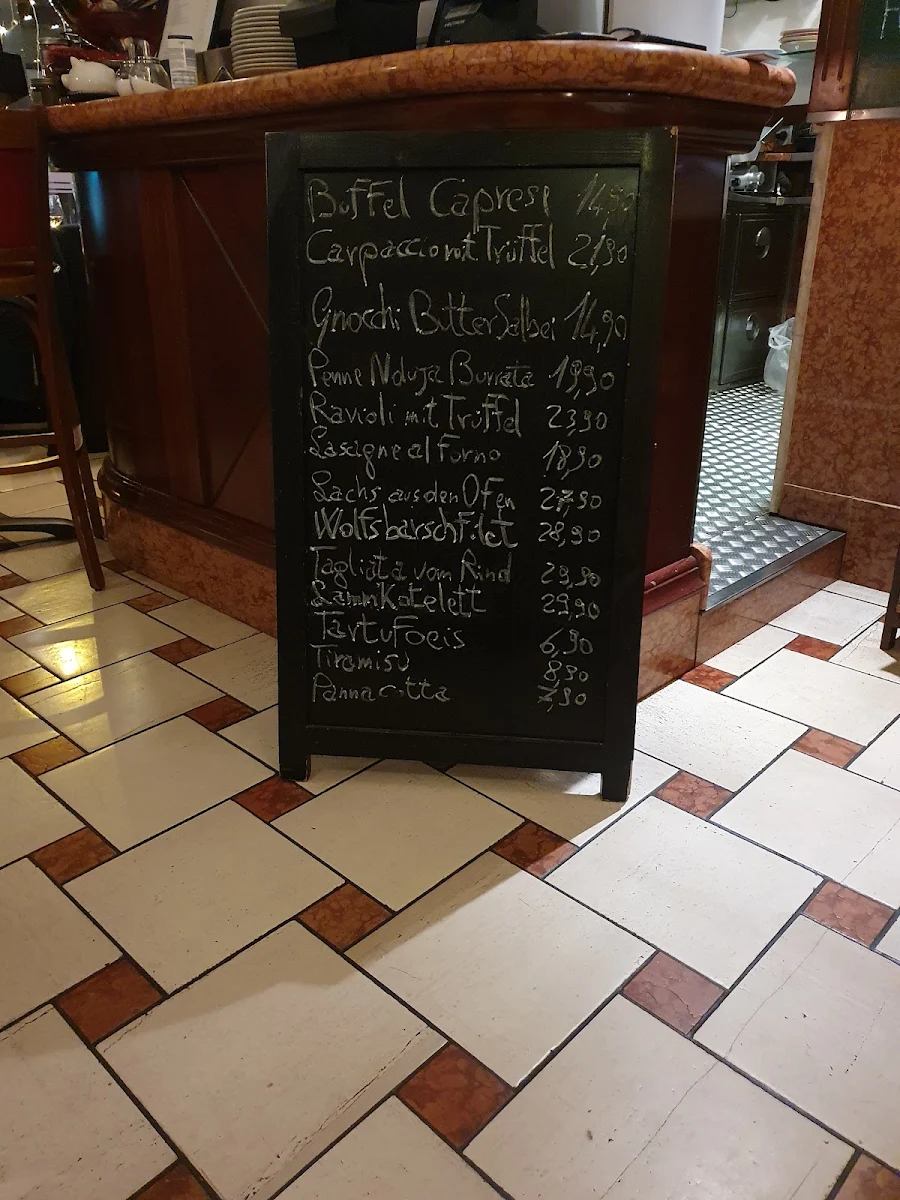 Buffel Caprese 14,90
Carpaccio mit Trüffel 21,90
Gnocchi Butter Salbei 14,90
Penne Nduja Burrata 19,90
Ravioli mit Trüffel 23,90
Lasagne al Forno 18,90
Lachs aus den Ofen 27,90
Wolfsbarschfilet 28,90
Tagliata vom Rind 29,90
Lammkotelett 29,90
Tartufoeis 6,90
Tiramisu 8,90
Pannacotta 7,90